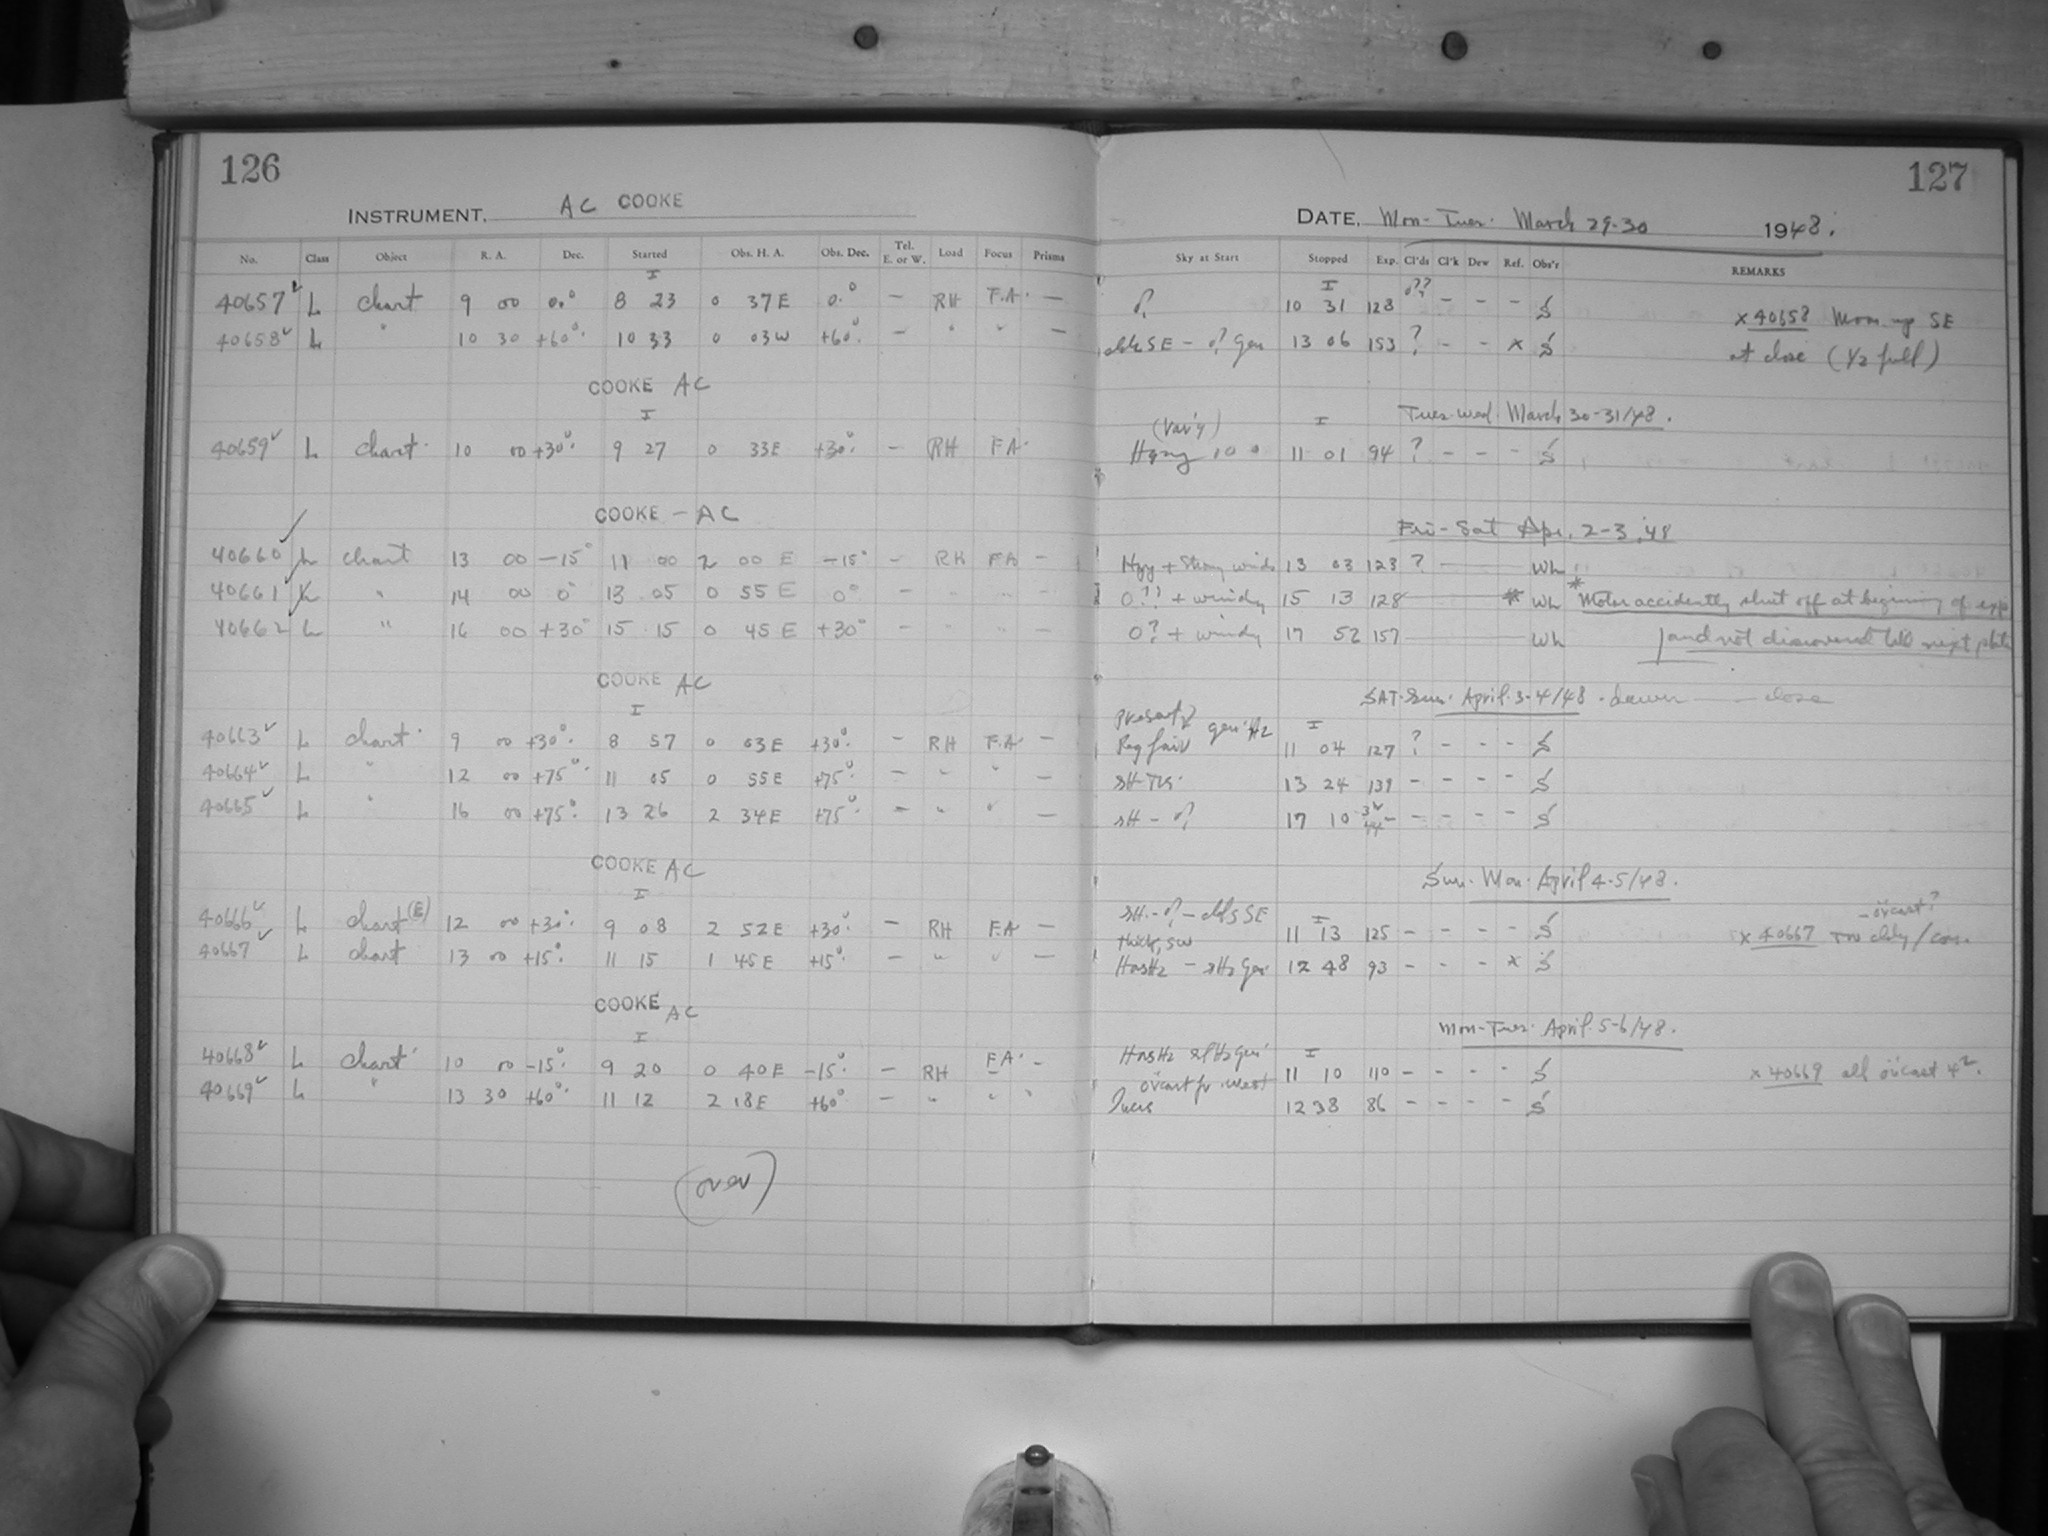 126
127
INSTRUMENT. AC COOKE
DATE, Mon-Tues. March 29-30 1948.
No. Class Object R. A. Dec. Started Obs. H. A. Obs. Dec. Tel. E. or W. Load Focus Prisms Sky at Start Stopped Exp. Cl'ds Cl'k Dew Ref. Obs'r REMARKS
I I
40657 L chart 9 00 0.° 8 23 0 37E 0.° — RH F.A. — 10 31 128 ?? - - - S x 40658 Moon up SE
40658 L " 10 30 +60° 10 33 0 03W +60° — " " — SE - Gen 13 06 153 ? - - x S at close (1/2 full)
COOKE AC
I (var'y) I Tues-Wed. March 30-31/48.
40659 L chart 10 00 +30° 9 27 0 33E +30° — RH F.A. Hazy 10 11 01 94 ? - - - S
COOKE - AC
Fri-Sat Apr. 2-3,'48
40660 L chart 13 00 -15° 11 00 2 00 E -15° - RH FA - Hzy + Strong winds 13 03 123 ? Wh
40661 L " 14 00 0° 13 05 0 55 E 0° - 0?? + windy 15 13 128 * Wh *Motor accidently shut off at begining of exp
40662 L " 16 00 +30° 15 15 0 45 E +30° - 0? + windy 17 52 157 Wh and not discovered till next plate
COOKE AC
SAT-Sun. April 3-4/48 - dawn — close
I gen Hz I
40663 L chart 9 00 +30° 8 57 0 03E +30° - RH F.A. - Reg fair 11 04 127 ? - - - S
40664 L " 12 00 +75° 11 05 0 55E +75° - " " - 13 24 139 - - - - S
40665 L " 16 00 +75° 13 26 2 34E +75° - " " - sH - 17 10 - - - - S
COOKE AC
Sun-Mon. April 4-5/48.
I sH - - clds SE I - ovcast?
40666 L chart (E) 12 00 +30° 9 08 2 52E +30° - RH F.A. - thick, SW 11 13 125 - - - - S x 40667 Too cldy / con.
40667 L chart 13 00 +15° 11 15 1 45E +15° - " " - - sHz Gen 12 48 93 - - - x S
COOKE AC
Mon-Tues. April 5-6/48.
I I
40668 L chart 10 00 -15° 9 20 0 40E -15° - RH F.A. - ovcast fr. west 11 10 110 - - - - S x 40669 all ovcast
40669 L " 13 30 +60° 11 12 2 18E +60° - " " 12 38 86 - - - - S
(over)